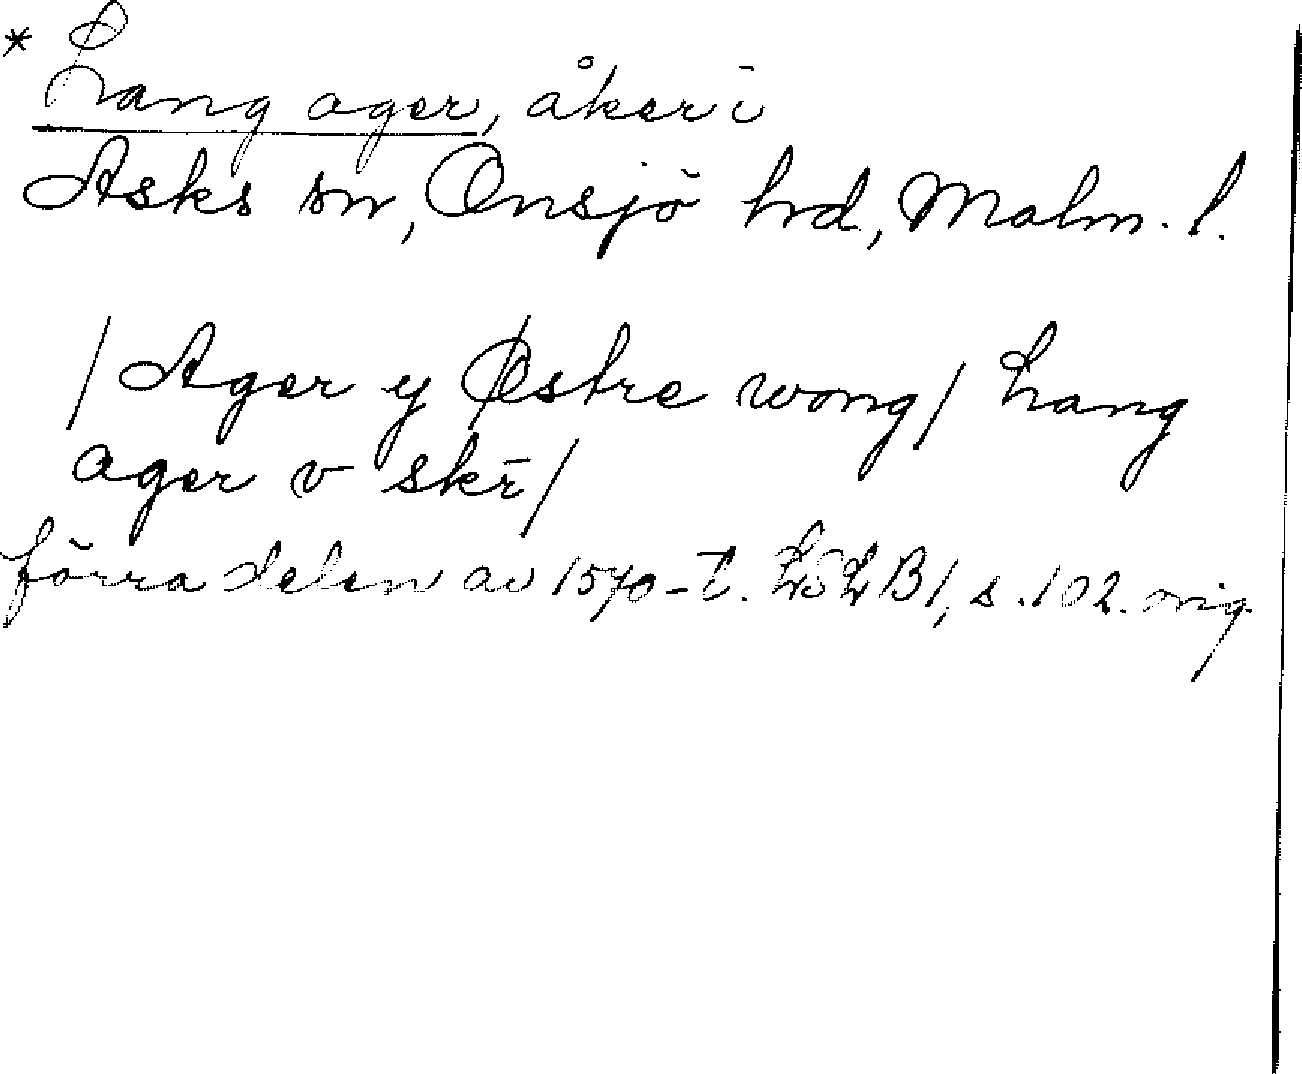 * Lang ager, åker i
Asks sn, Onsjö hrd, Malm. l.
/Ager y Østre wong/ Lang
ager v skr̄/
förra delen av 1570-t. LSLB1, s. 102. orig.